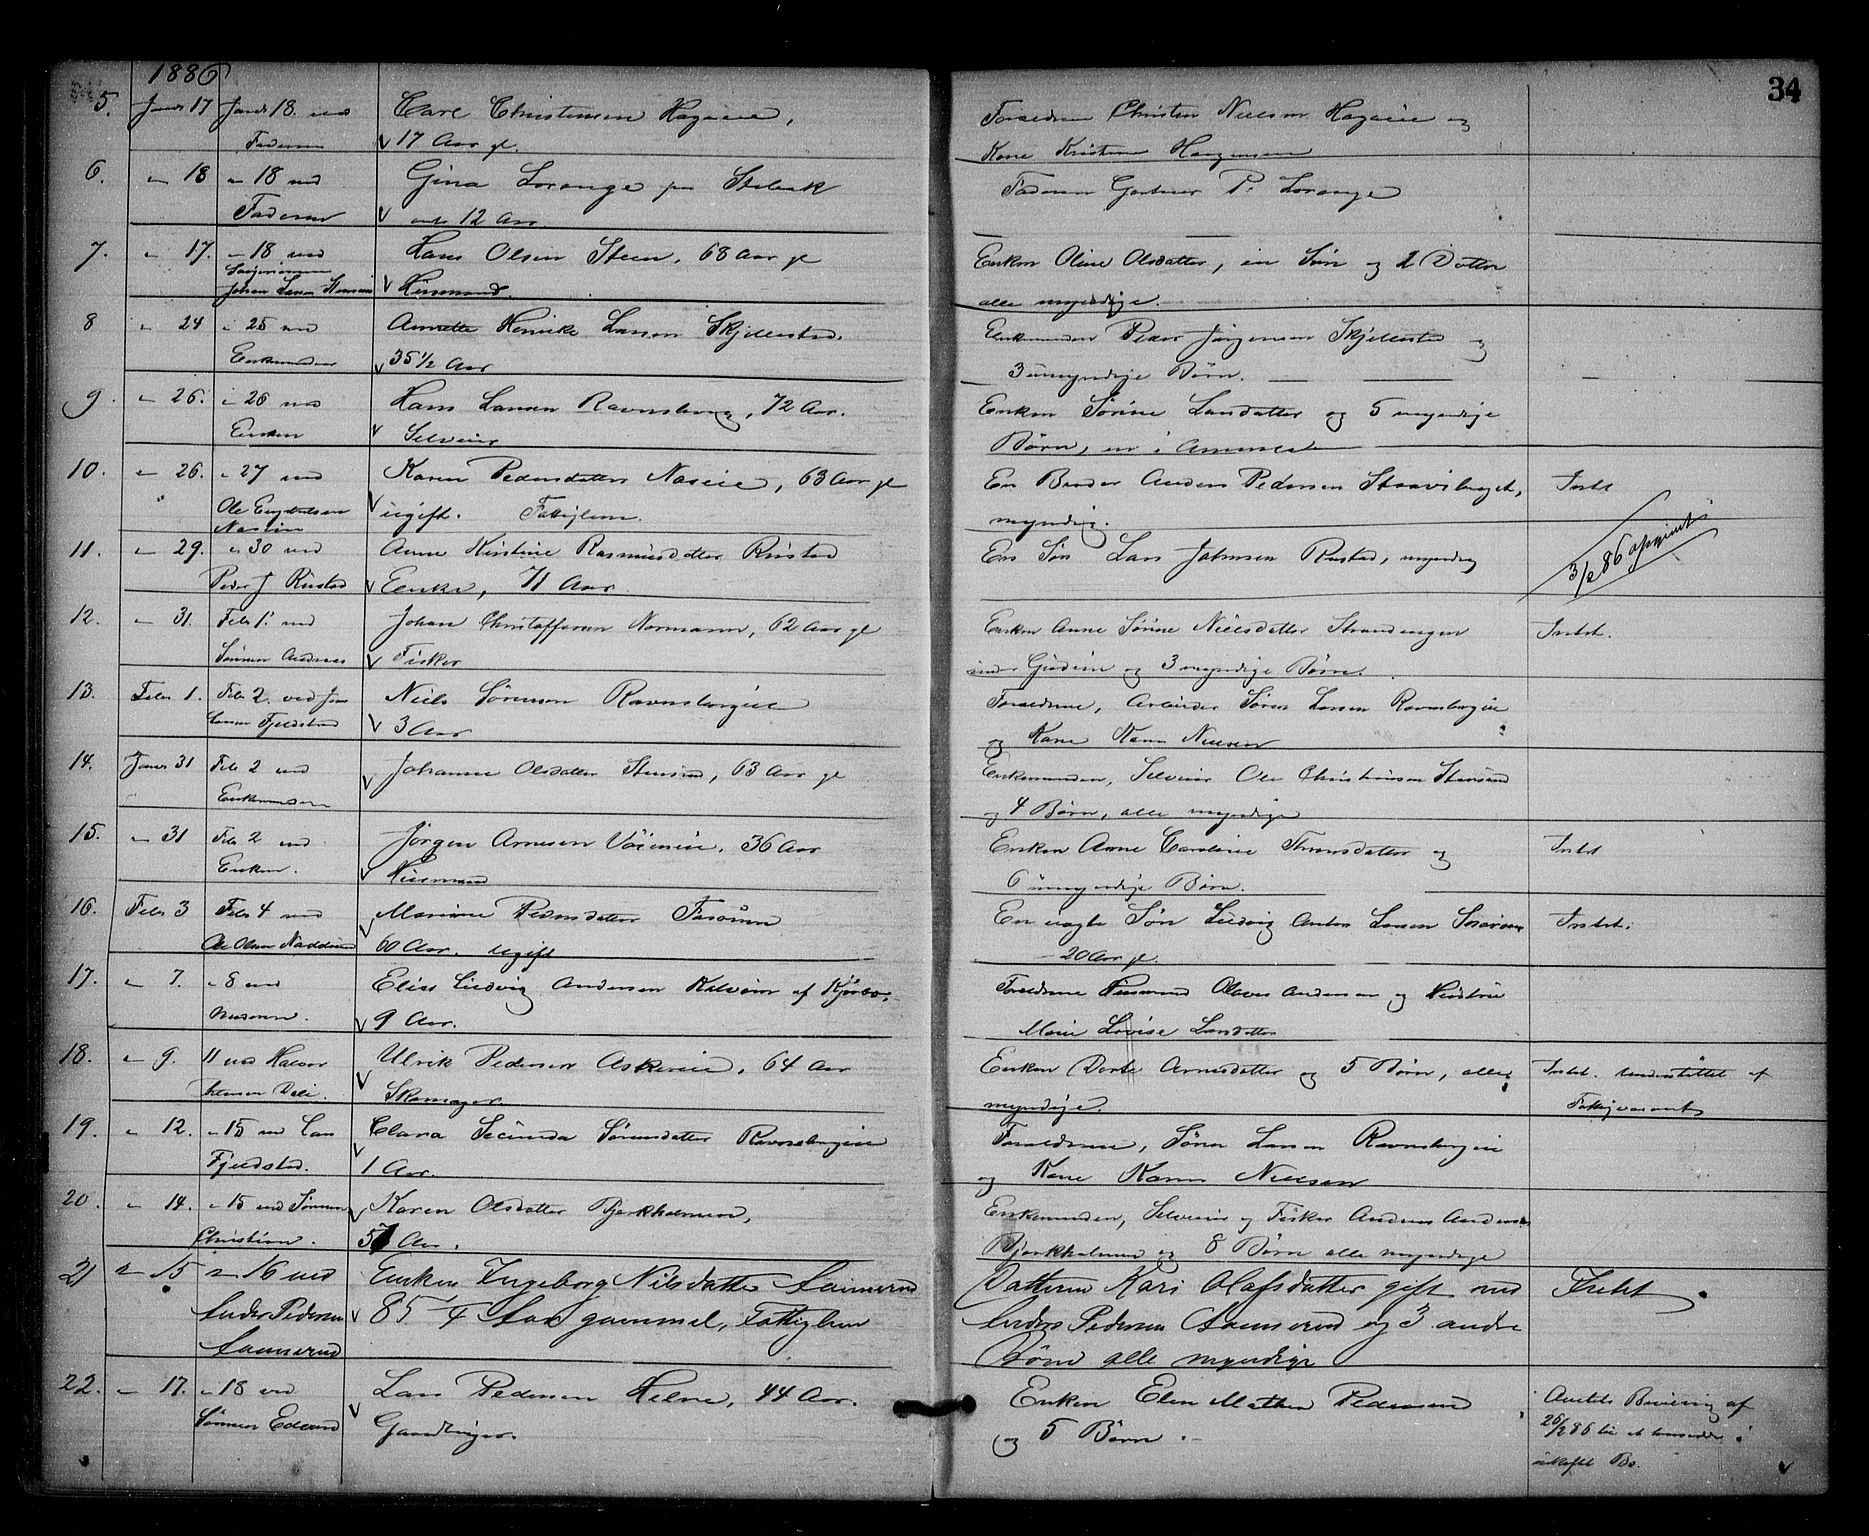 1886
34
5. Janr 17 Janr 18. ved Carl Christensen Hagaeie, Forældrene Christen Nielsen Hagaeie og
Faderen 17 Aar gl. Kone Kristine Haagensen
6. " 18 " 18 ved Gina Lorange paa Stabæk Faderen Gartner P. Lorange
Faderen 12 Aar.
7. " 17. " 18 ved Hans Olsen Steen, 68 Aar gl Enken Oline Olsdatter, en Søn og 2 Døttre
Svigersønnen
Johan Larsen Husmand. alle myndige.
8 " 24 " 25 ved Annette Henrike Larsen Skjellestad. Enkemanden Peder Jørgensen Skjellestad og
Enkemanden 35 1/2 Aar 3 umyndige Børn.
9. " 26. " 26 ved Hans Larsen Ravnsborg, 72 Aar. Enken Sørine Larsdatter og 5 myndige
Enken Selveier Børn, en i Amerika
10. " 26. " 27 ved Karen Pedersdatter Næseie, 63 Aar gl En Broder Anders Pedersen Staavisberget, Intet
Ole Engebretsen ugift. Fattiglem. myndig.
Næseie
11. " 29. " 30 ved Anne Kirstine Rasmusdatter Rustad En Søn Lars Johnsen Rustad, myndig 3/2 86 afgivet
Peder J Rustad Enke, 71 Aar.
12. " 31. Febr 1. ved Johan Christoffersen Normann, 62 Aar gl Enken Anne Sørine Nielsdatter Strandengen Intet.
Sønnen Andreas Fisker under Gisdein og 3 myndige Børn.
13. Febr 1. Feb 2. ved Jens Niels Sørensen Ravnsborgeie Forældrene, Arbeider Søren Larsen Ravnsborgeie
Larsen Fjeldstad 3 Aar og Kone Karen Nielsen
14. Janr 31 Feb 2 ved Johanne Olsdatter Stensrud, 63 Aar gl Enkemanden, Selveier Ole Christiansen Stensrud
Enkemanden og 4 Børn, alle myndige
15. " 31 Feb 2 ved Jørgen Arnesen Vøieneie, 36 Aar Enken Anne Caroline Thronsdatter og Intet
Enken. Husmand 6 umyndige Børn.
16. Febr 3 Febr 4 ved Mariane Pedersdatter En uægte Søn Ludvig Anton Larsen Intet.
Ole Olsen Nadderud 60 Aar. ugift 20 Aar gl.
17. " 7. " 8 ved Elise Ludvig Andersen Kalvøen af Kjørbo, Forældrene Husmand Olaves Andersen og Hustru
Moderen. 9 Aar. Marie Lovise Larsdatter
18. " 9. 11 ved Halvor Ulrik Pedersen Askereie, 64 Aar Enken Dorte Arnesdatter og 5 Børn, alle Intet. Understøttet af
Iversen Dæli. Skomager. myndige. Fattigvæsenet
19. " 12. " 15 ved Lars Clara Secunda Sørensdatter Ravnsborgeie Forældrene, Søren Larsen Ravnsborgeie
Fjeldstad. 1 Aar. og Kone Karen Nielsen
20. " 14. " 15 ved Sønnen Karen Olsdatter Bjerkholmen, Enkemanden, Selveier og Fisker Anders Andersen
Christian. 57 Aar. Bjerkholmen og 8 Børn alle myndige
21 " 15 " 16 ved Enken Ingeborg Nilsdatter Aamerud Datteren Kari Olafsdatter gift med Intet
Anders Pedersen 85 Aar gammel, Fattiglem Anders Pedersen Aamerud og 3 andre
Aamerud Børn alle myndige
22. " 17. " 18 ved Lars Pedersen Helne, 44 Aar. Enken Elen Mathea Pedersen Amtets Bevilling af
Sønnen Edvard Gaardbruger. og 5 Børn. 26/2 86 til at hensidde i
uskiftet Bo.